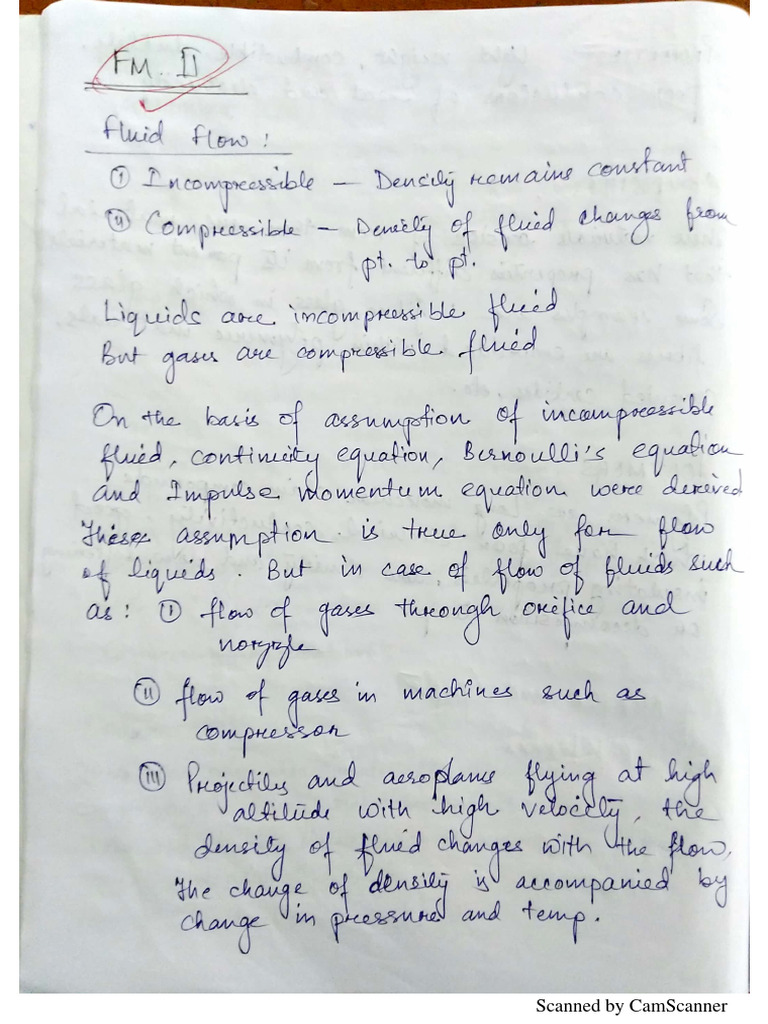 FM. II
Fluid flow :
(i) Incompressible – Density remains constant
(ii) Compressible – Density of fluid changes from
pt. to pt.
Liquids are incompressible fluid
But gases are compressible fluid
On the basis of assumption of incompressible
fluid, continuity equation, Bernoulli's equation
and Impulse momentum equation were derived
These assumption is true only for flow
of liquids. But in case of flow of fluids such
as: (i) flow of gases through orifice and
nozzle
(ii) flow of gases in machines such as
compressor
(iii) Projectiles and aeroplans flying at high
altitude with high velocity, the
density of fluid changes with the flow.
The change of density is accompanied by
change in pressure and temp.
Scanned by CamScanner